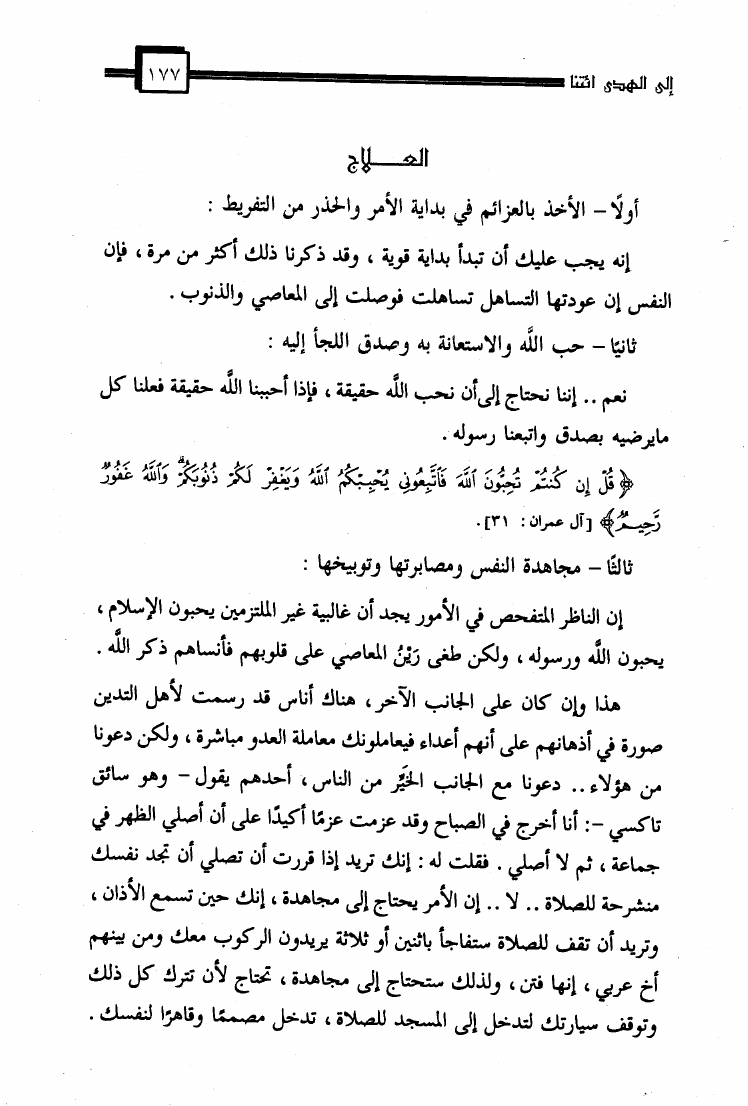 إلى الهدى ائتنا ١٧٧
العـــلاج
أولًا – الأخذ بالعزائم في بداية الأمر والحذر من التفريط :
إنه يجب عليك أن تبدأ بداية قوية ، وقد ذكرنا ذلك أكثر من مرة ، فإن
النفس إن عودتها التساهل تساهلت فوصلت إلى المعاصي والذنوب .
ثانيًا – حب اللَّه والاستعانة به وصدق اللجأ إليه :
نعم .. إننا نحتاج إلى أن نحب اللَّه حقيقة ، فإذا أحببنا اللَّه حقيقة فعلنا كل
مايرضيه بصدق واتبعنا رسوله .
﴿ قُلْ إِن كُنتُمْ تُحِبُّونَ ٱللَّهَ فَٱتَّبِعُونِي يُحْبِبْكُمُ ٱللَّهُ وَيَغْفِرْ لَكُمْ ذُنُوبَكُمْ ۗ وَٱللَّهُ غَفُورٌ
رَّحِيمٌ ﴾ [آل عمران : ٣١].
ثالثًا – مجاهدة النفس ومصابرتها وتوبيخها :
إن الناظر المتفحص في الأمور يجد أن غالبية غير الملتزمين يحبون الإسلام ،
يحبون اللَّه ورسوله ، ولكن طغى رَيْنُ المعاصي على قلوبهم فأنساهم ذكر اللَّه .
هذا وإن كان على الجانب الآخر ، هناك أناس قد رسمت لأهل التدين
صورة في أذهانهم على أنهم أعداء فيعاملونك معاملة العدو مباشرة ، ولكن دعونا
من هؤلاء .. دعونا مع الجانب الخَيِّر من الناس ، أحدهم يقول – وهو سائق
تاكسي –: أنا أخرج في الصباح وقد عزمت عزمًا أكيدًا على أن أصلي الظهر في
جماعة ، ثم لا أصلي . فقلت له : إنك تريد إذا قررت أن تصلي أن تجد نفسك
منشرحة للصلاة .. لا .. إن الأمر يحتاج إلى مجاهدة ، إنك حين تسمع الأذان ،
وتريد أن تقف للصلاة ستفاجأ باثنين أو ثلاثة يريدون الركوب معك ومن بينهم
أخ عربي ، إنها فتن ، ولذلك ستحتاج إلى مجاهدة ، تحتاج لأن تترك كل ذلك
وتوقف سيارتك لتدخل إلى المسجد للصلاة ، تدخل مصممًا وقاهرًا لنفسك .